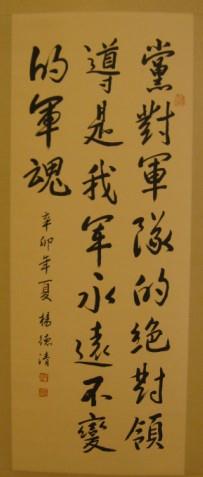 黨對軍隊的絕對領
導是我军永遠不變
的軍魂
辛卯年夏 楊德清